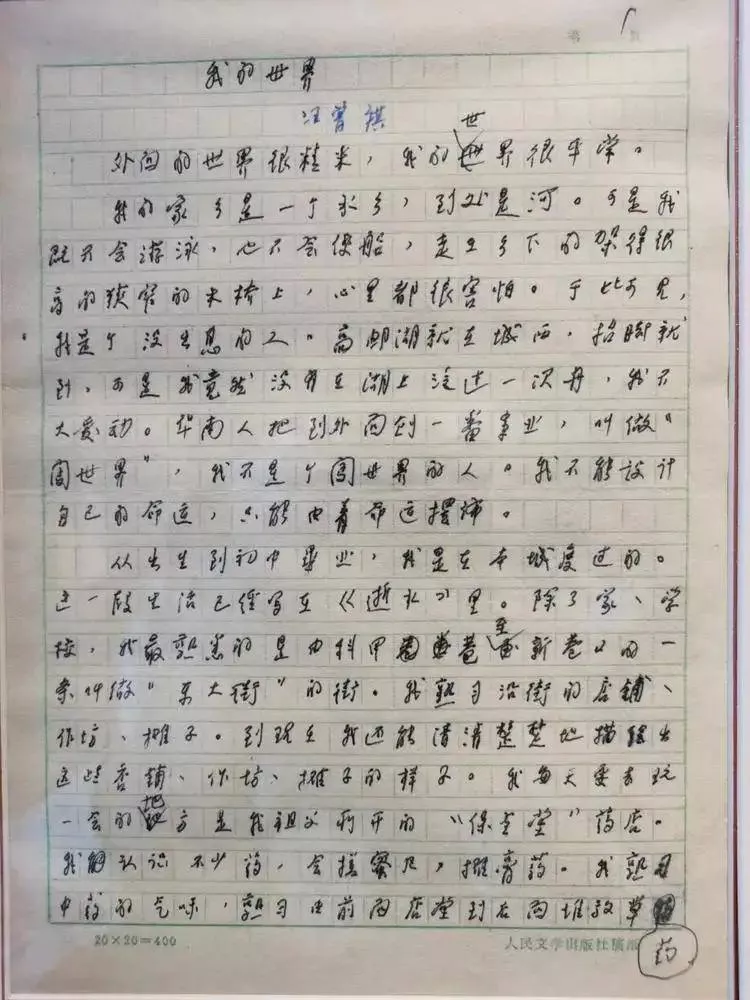 第 1 页
我的世界
汪曾祺
外面的世界很精采，我的世界很平常。
我的家乡是一个水乡，到处是河。可是我
既不会游泳，也不会使船，走在乡下的架得很
高的狭窄的木桥上，心里都很害怕。于此可见，
我是个没出息的人。高邮湖就在城西，抬脚就
到，可是我竟然没有在湖上泛过一次舟，我不
大爱动。华南人把到外面创一番事业，叫做“
闯世界”，我不是个闯世界的人。我不能设计
自己的命运，只能由着命运摆布。
从出生到初中毕业，我是在本城度过的。
这一段生活已经写在《逝水》里。除了家、学
校，我最熟悉的是由科甲巷至新巷口的一
条叫做“东大街”的街。我熟习沿街的店铺、
作坊、摊子。到现在我还能清清楚楚地描绘出
这些店铺、作坊、摊子的样子。我每天要去玩
一会的地方是我祖父所开的“保全堂”药店。
我认识不少药，会搓蜜丸，摊膏药。我熟习
中药的气味，熟习由前面店堂到后面堆放草
药
20×20=400
人民文学出版社稿纸